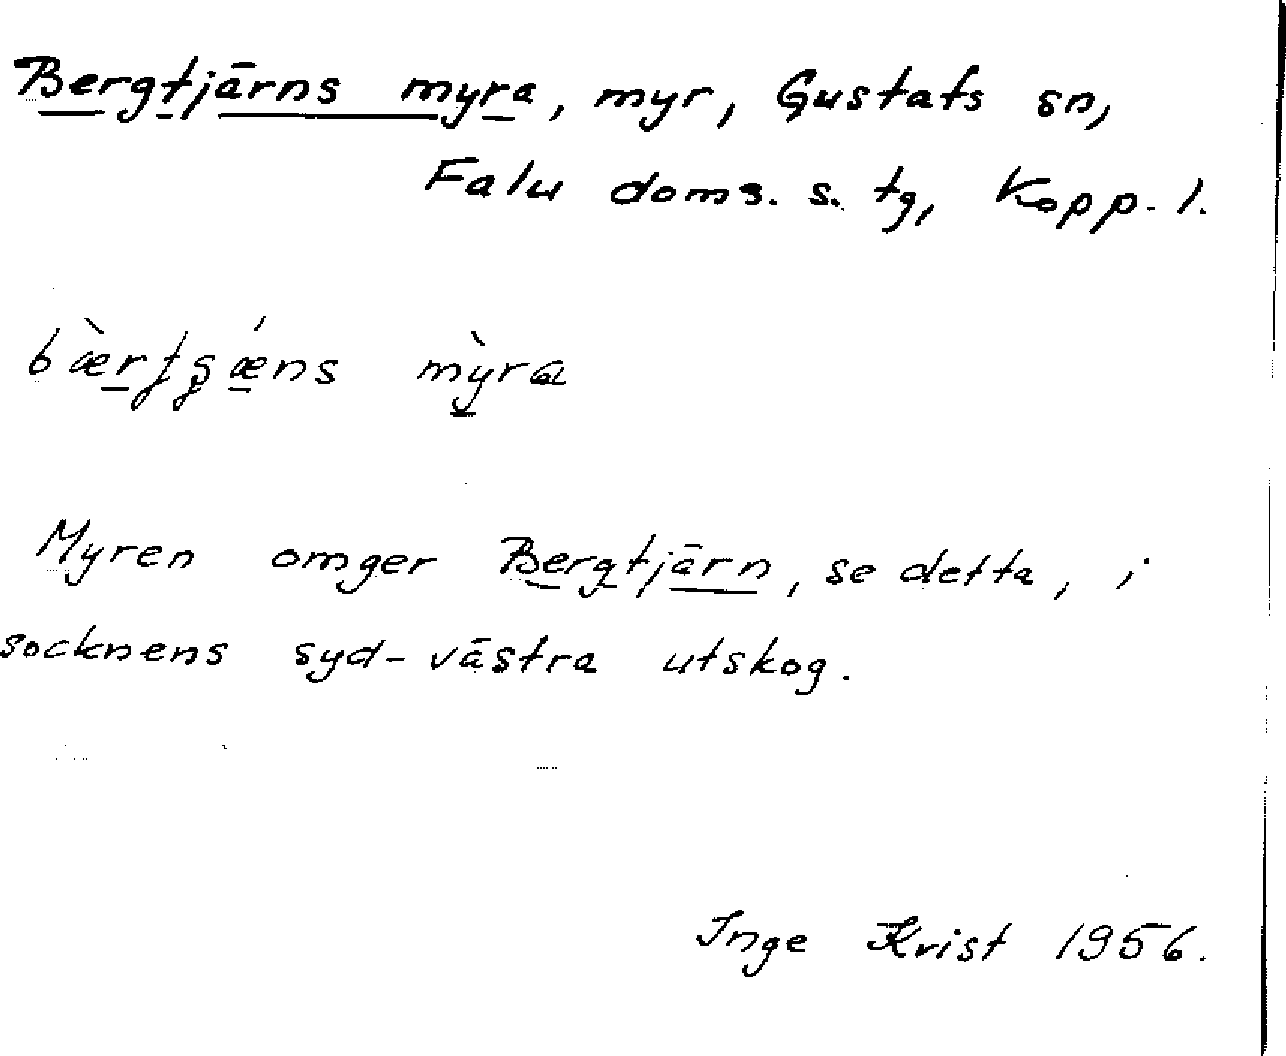 Bergtjärns myra, myr, Gustafs sn,
Falu doms. s. tg, Kopp. l.
mỳra
Myren omger Bergtjärn, se detta, i
socknens syd-västra utskog.
Inge Krist 1956.